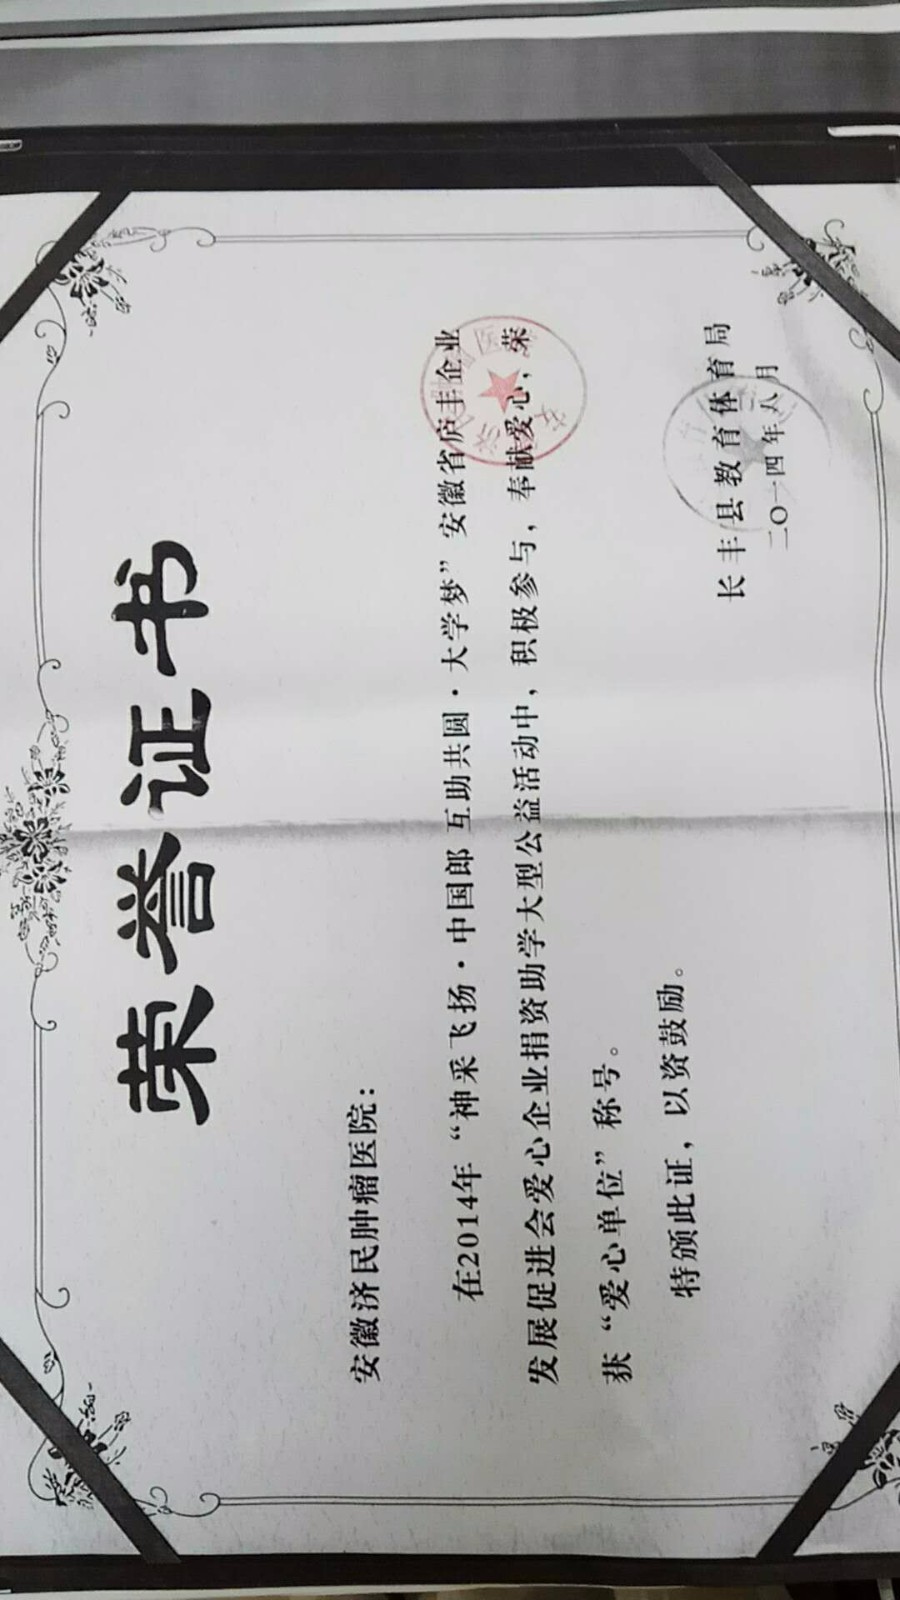 荣誉证书
安徽济民肿瘤医院：
在2014年“神采飞扬·中国郎 互助共圆·大学梦”安徽省庐丰企业
发展促进会爱心企业捐资助学大型公益活动中，积极参与，奉献爱心，荣
获“爱心单位”称号。
特颁此证，以资鼓励。
长丰县教育体育局
二〇一四年八月